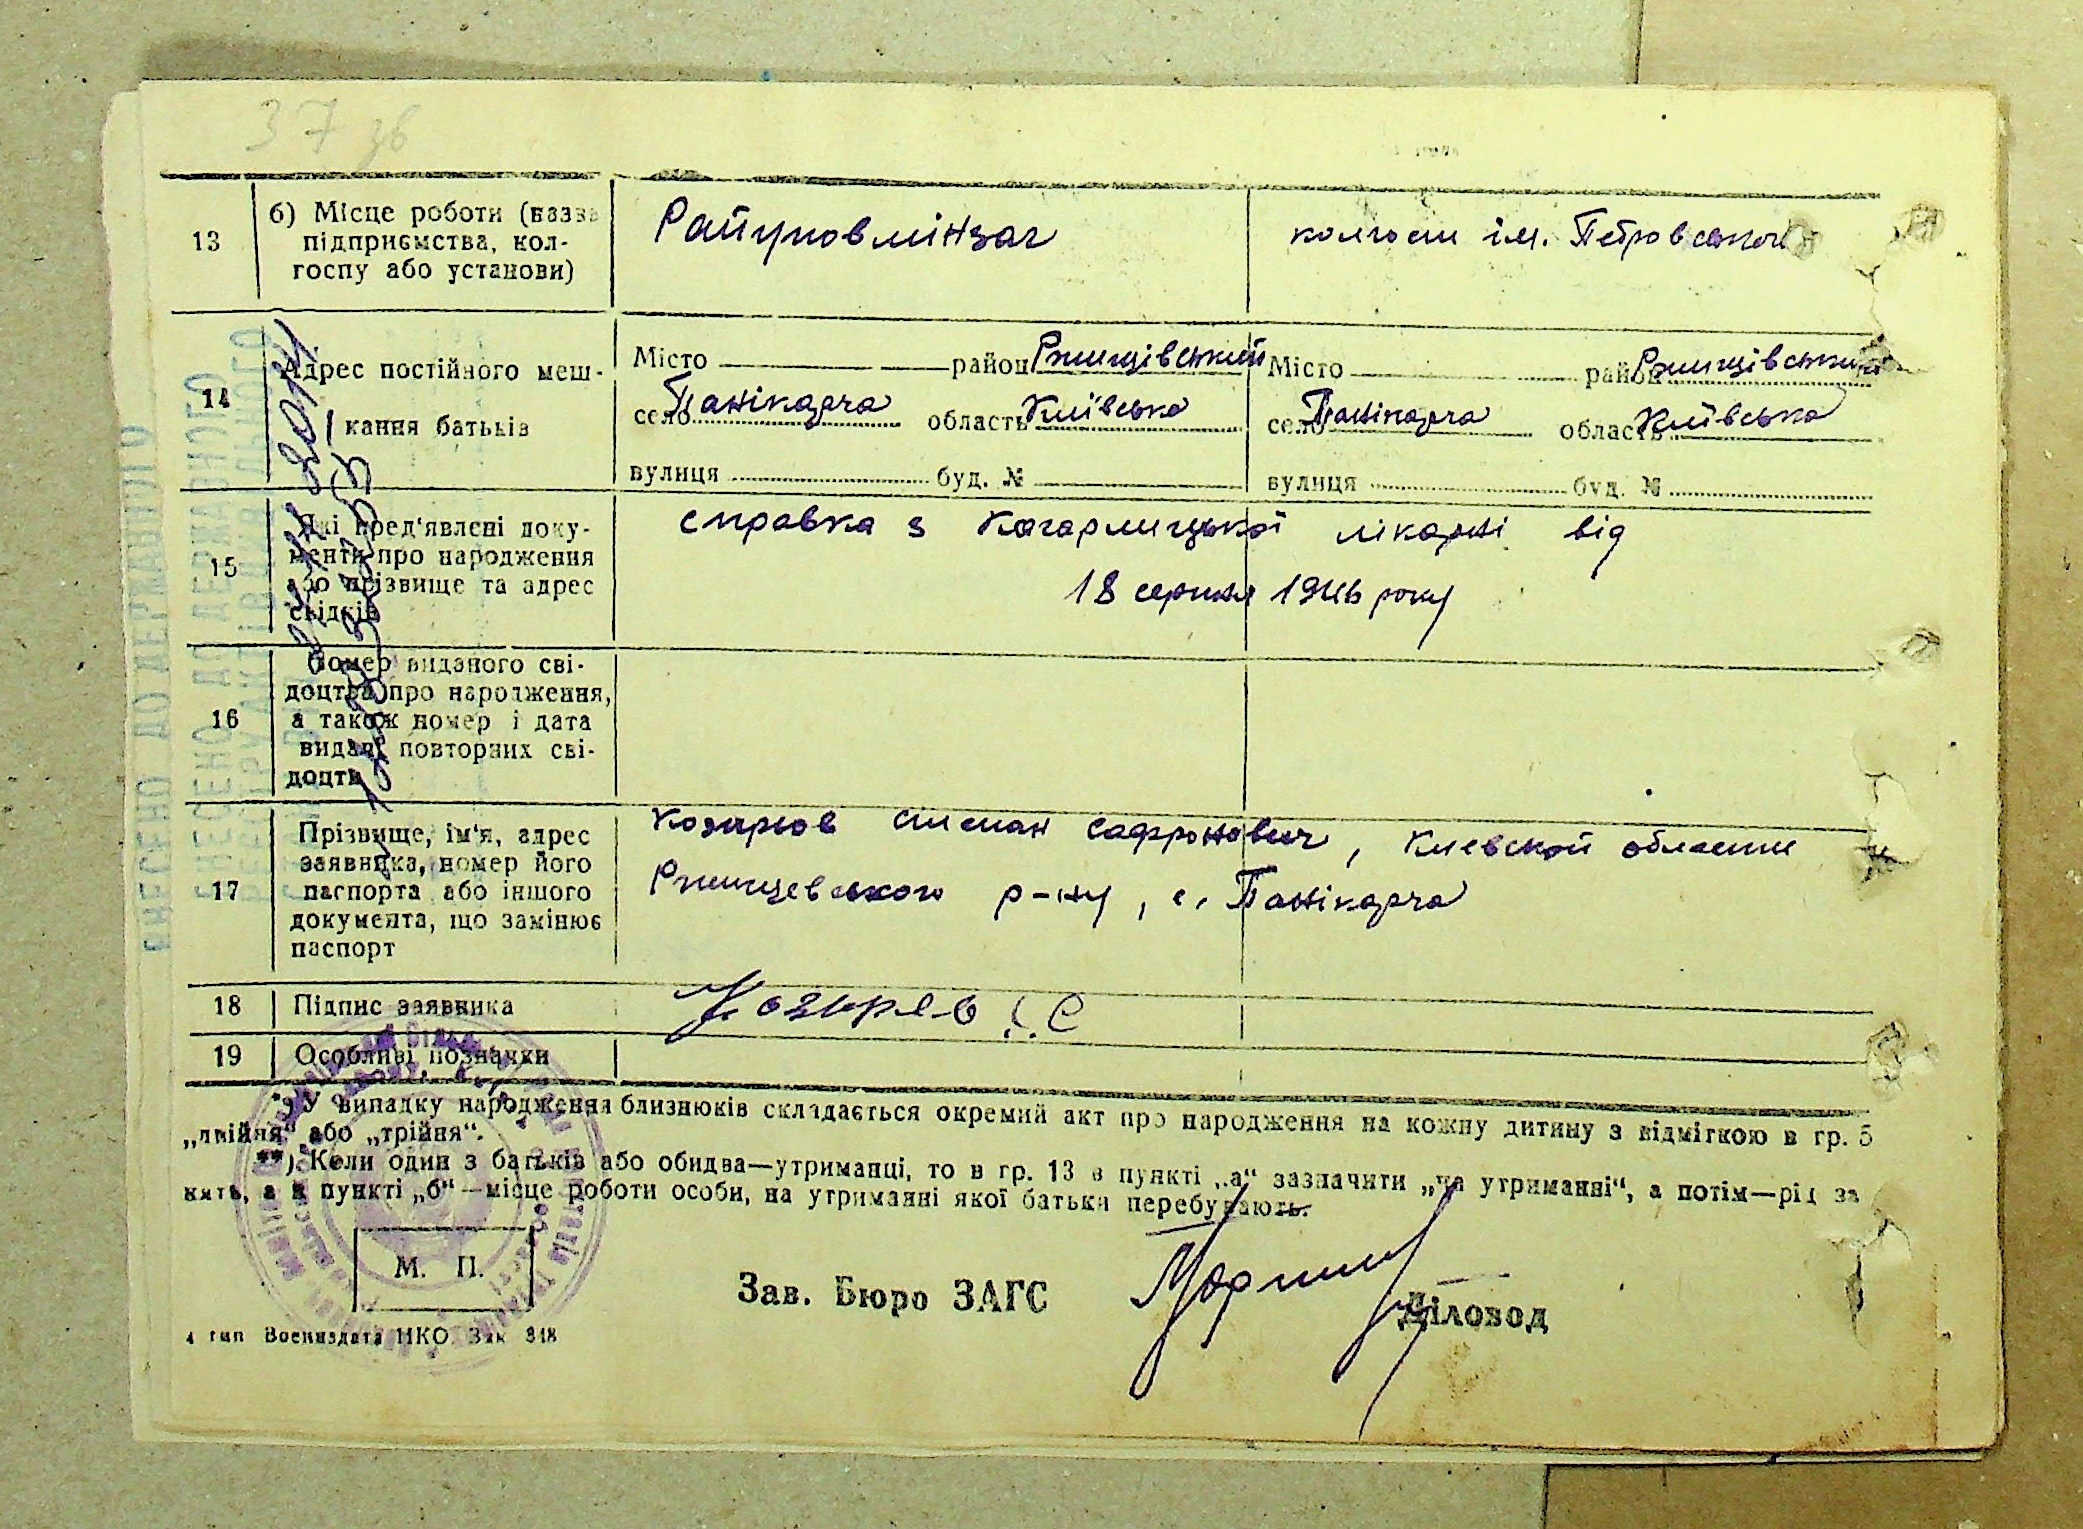 37 зв
13
б) Місце роботи (назва
підприємства, кол-
госпу або установи)
Райуповмінзаг
колгосп ім. Петровського
14
Адрес постійного меш-
кання батьків
Місто район Ржищівський
село Панікарча область Київська
вулиця буд. №
Місто район Ржищівський
село Панікарча область Київська
вулиця буд. №
15
Які пред'явлені доку-
менти про народження
або прізвище та адрес
свідків
справка з Кагарлицької лікарні від
18 серпня 1946 року
16
Номер виданого сві-
доцтва про народження,
а також номер і дата
видачі повторних сві-
доцтв
17
Прізвище, ім'я, адрес
заявника, номер його
паспорта або іншого
документа, що замінює
паспорт
Козирьов Степан Сафронович, Киевской области
Ржищевського р-ну, с. Панікарча
18
Підпис заявника
Козырев С.С
19
Особливі позначки
*) У випадку народження близнюків складається окремий акт про народження на кожну дитину з відміткою в гр. 5
„двійня“ або „трійня“.
**) Коли один з батьків або обидва—утриманці, то в гр. 13 в пункті „а“ зазначити „на утриманні“, а потім—рід за
нять, а в пункті „б“—місце роботи особи, на утриманні якої батьки перебувають.
М. П.
Зав. Бюро ЗАГС
Діловод
4 тип Воениздата НКО. Зак 318
ВНЕСЕНО ДО ДЕРЖАВНОГО